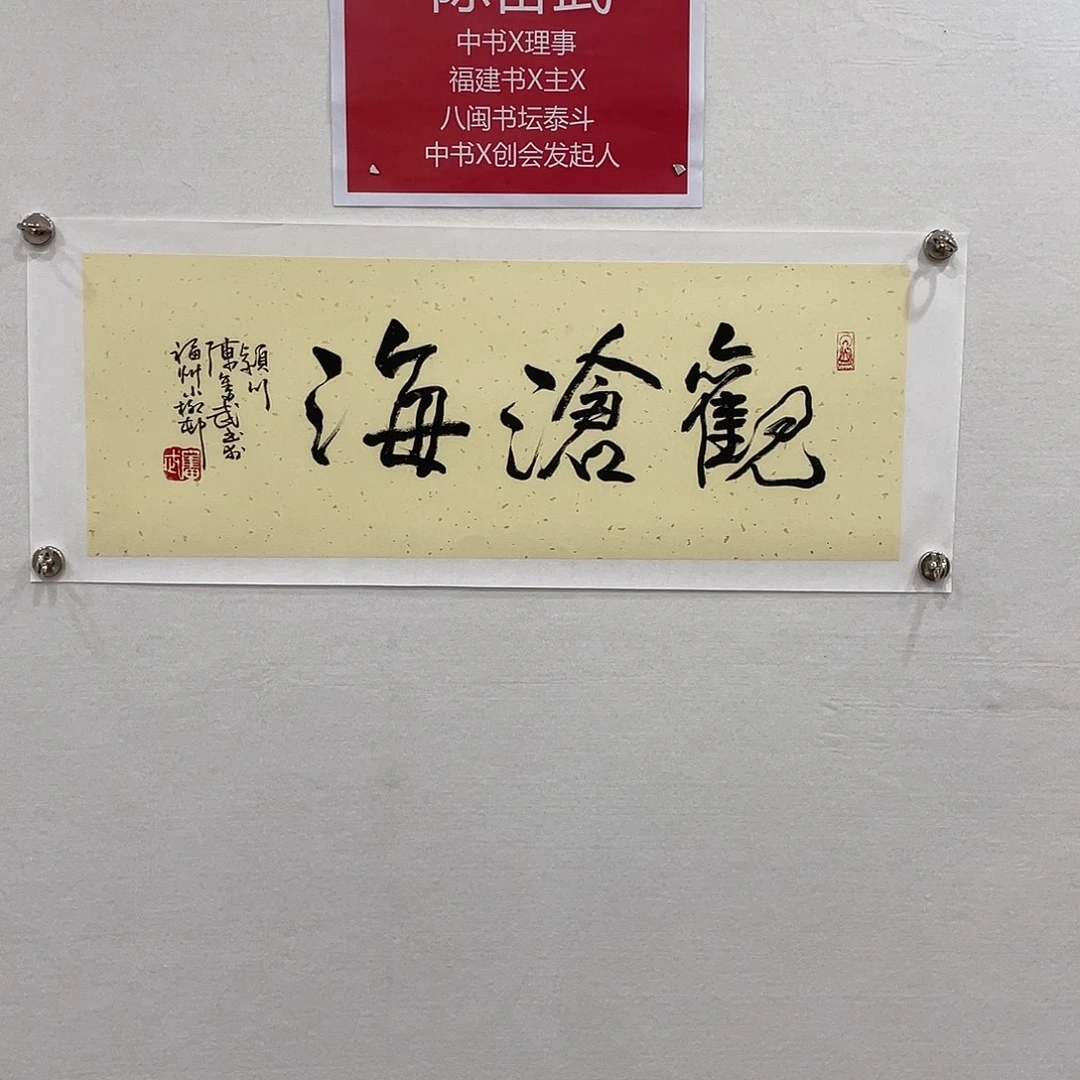 陈奋武
中书X理事
福建书X主X
八闽书坛泰斗
中书X创会发起人
觀滄海
潁川
陳奮武書於
福州小柳邨
奮武